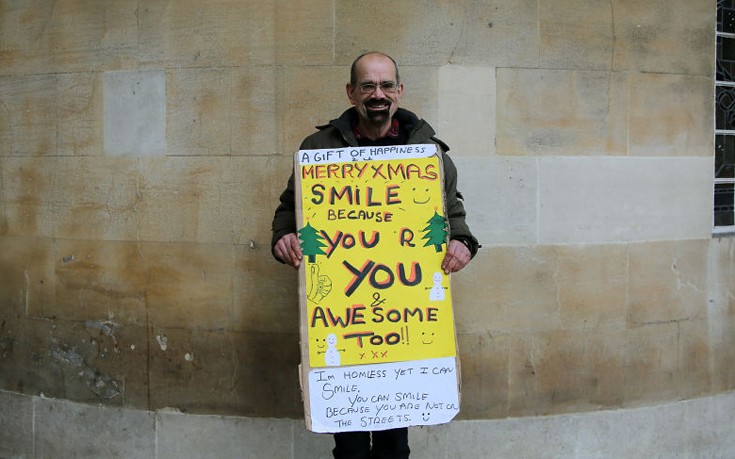 A GIFT OF HAPPINESS
MERRY XMAS
SMILE
BECAUSE
YOU R
YOU
&
AWESOME
TOO!!
xxx
I'm HOMLESS YET I CAN
SMILE.
YOU CAN SMILE
BECAUSE YOU ARE NOT ON
THE STREETS.